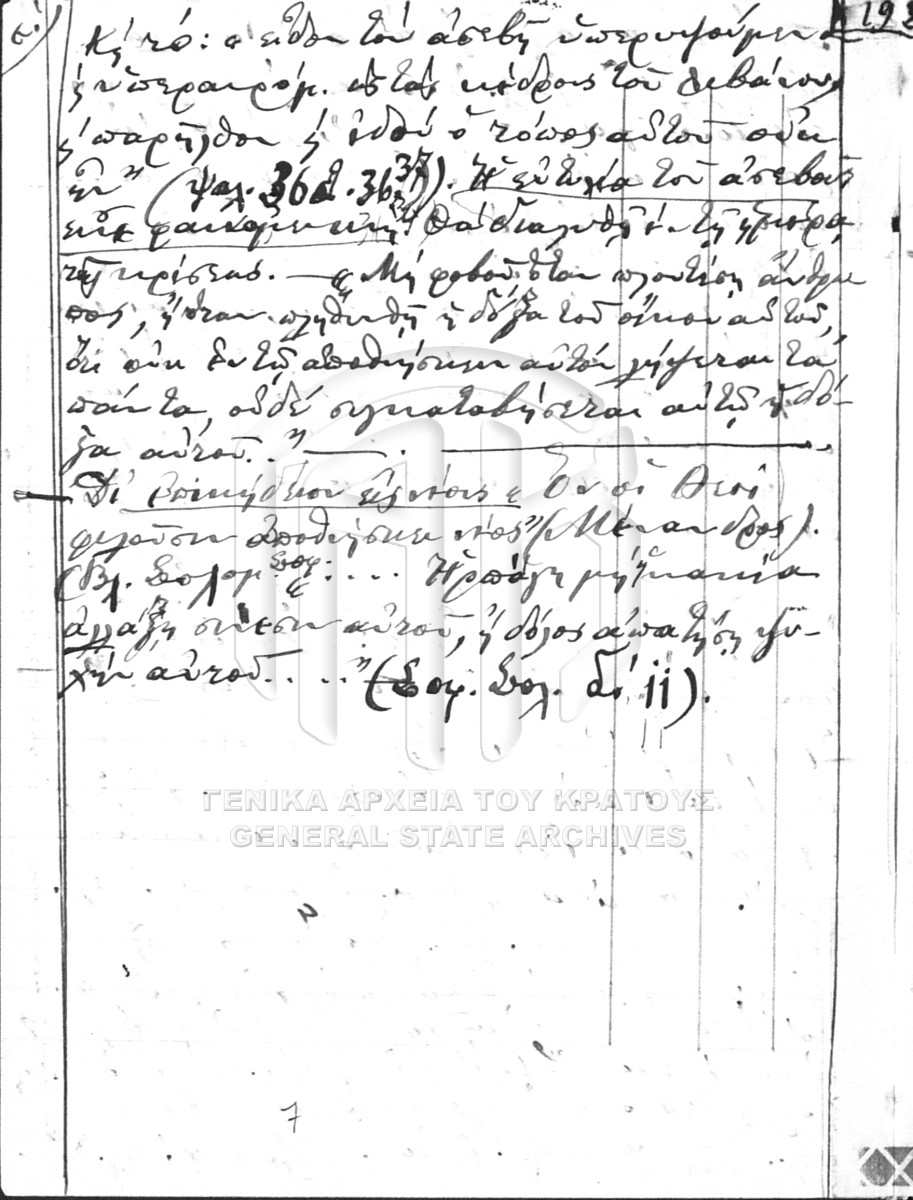 Κὴ τό: « εἶδον τὸν ἀσεβῆ ὑπερυψούμεν.
ϗ ὑπεραιρόμ. ὡς τὰς κέδρους τοῦ Λιβάνου,
ϗ παρῆλθον ϗ ἰδοὺ ὁ τόπος αὐτοῦ οὐκ
ἦν" (Ψαλ. 36). Ἡ εὐτυχία τοῦ ἀσεβοῦς
εἶνε φαινομενική. Θὰ διαλυθῇ ἐν τῇ ἡμέρᾳ
τῆς κρίσεως. — « Μὴ φοβοῦ ὅταν πλουτήσῃ ἄνθρω
πος, ἢ ὅταν πληθυνθῇ ἡ δόξα τοῦ οἴκου αὐτοῦ,
ὅτι οὐκ ἐν τῷ ἀποθνήσκειν αὐτὸν λήψεται τὰ
πάντα, οὐδὲ συγκαταβήσεται αὐτῷ ἡ δό-
ξα αὐτοῦ.." —— . ——
Δι' ἐπικήδειον εἰς νέους « Ὃν οἱ Θεοὶ
φιλοῦσιν ἀποθνήσκει νέος" (Μένανδρος).
(Βλ. Σολομ. Σοφ: « .... Ἡρπάγη μὴ κακία
ἀλλάξῃ σύνεσιν αὐτοῦ, ἢ δόλος ἀπατήσῃ ψυ-
χὴν αὐτοῦ....." (Σοφ. Σολ. δ' 11).
ΓΕΝΙΚΑ ΑΡΧΕΙΑ ΤΟΥ ΚΡΑΤΟΥΣ
GENERAL STATE ARCHIVES
7